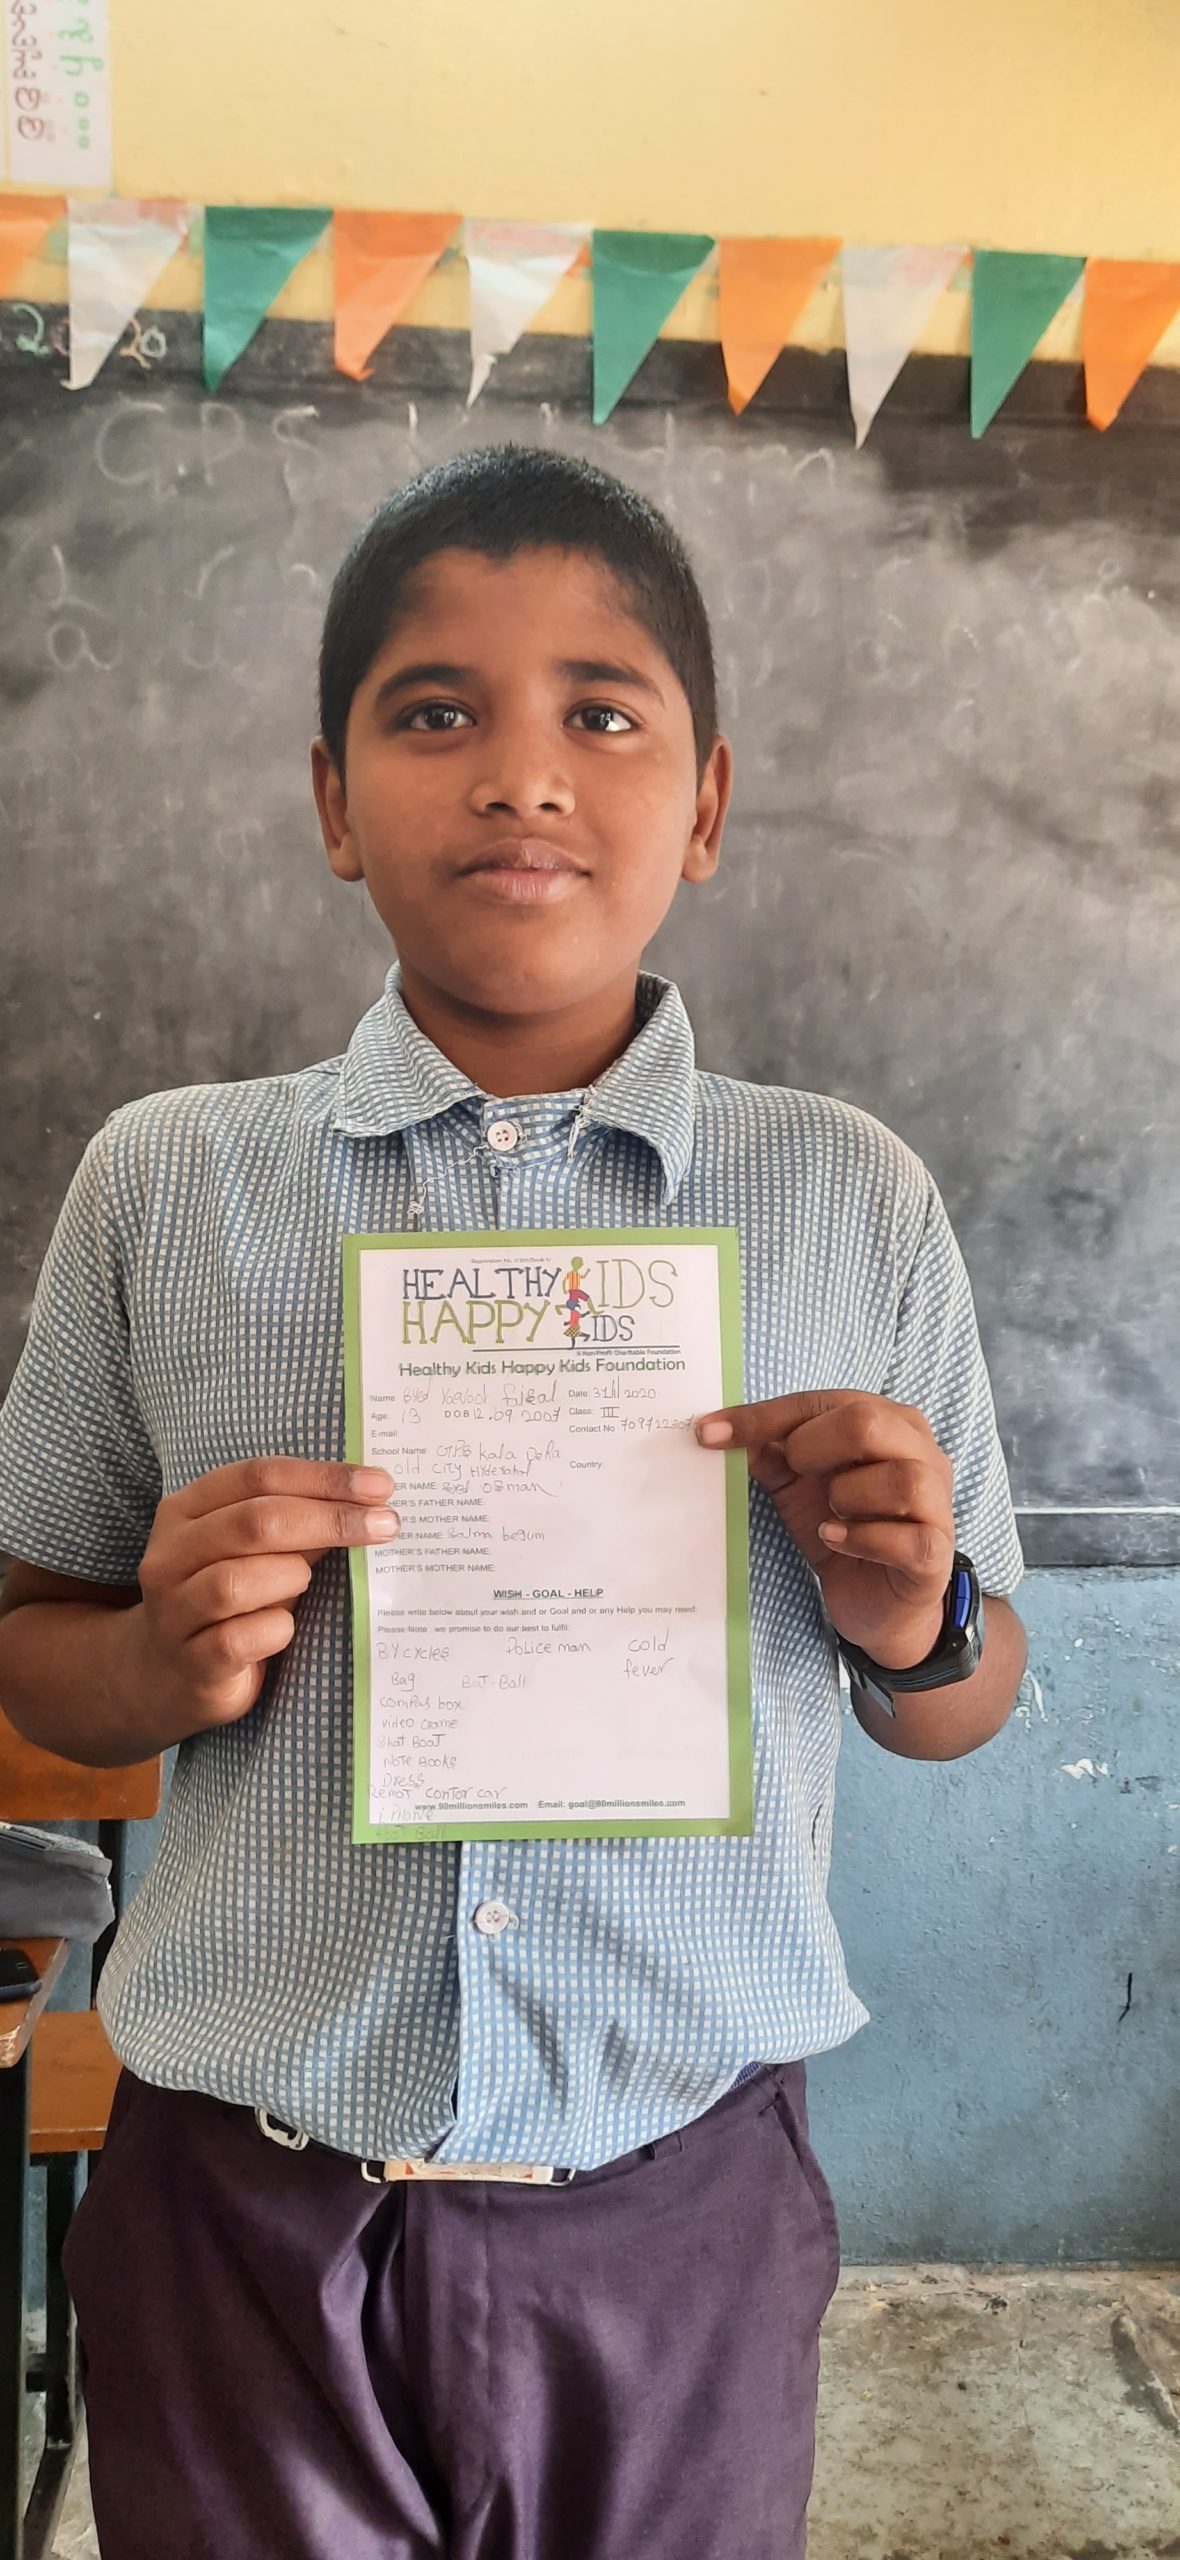 GPS
Registration No.
HEALTHY KIDS
HAPPY KIDS
A Non-Profit Charitable Foundation
Healthy Kids Happy Kids Foundation
Name: Syed Yaqoob faisal Date: 31/1/2020
Age: 13 DOB 12.09 2007 Class: III
E-mail Contact No 70972230
School Name: G.P.S Kala Dera
Old City Hyderabad Country:
ER NAME: Syed osman
HER'S FATHER NAME:
R'S MOTHER NAME:
HER NAME: Salma begum
MOTHER'S FATHER NAME:
MOTHER'S MOTHER NAME:
WISH - GOAL - HELP
Please write below about your wish and or Goal and or any Help you may need:
Please Note we promise to do our best to fulfil:
BYcycles Police man cold
fever
Bag Bat-Ball
compas box
video Game
Shat Boot
Note Books
Dress
Remot contor car
www.90millionsmiles.com Email: goal@90millionsmiles.com
i Phone
Ball